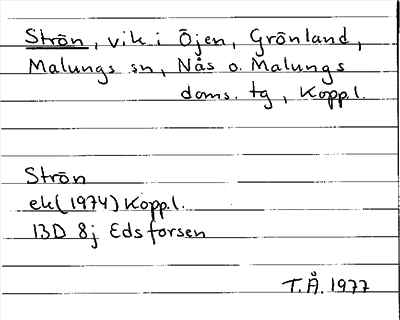 Strön, vik i Öjen, Grönland,
Malungs sn, Nås o. Malungs
doms. tg, Koppl.
Strön
ek(1974) Koppl.
13D 8j Edsforsen
T.Å. 1977